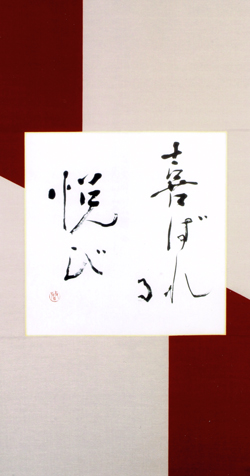 喜ばれる
悦び